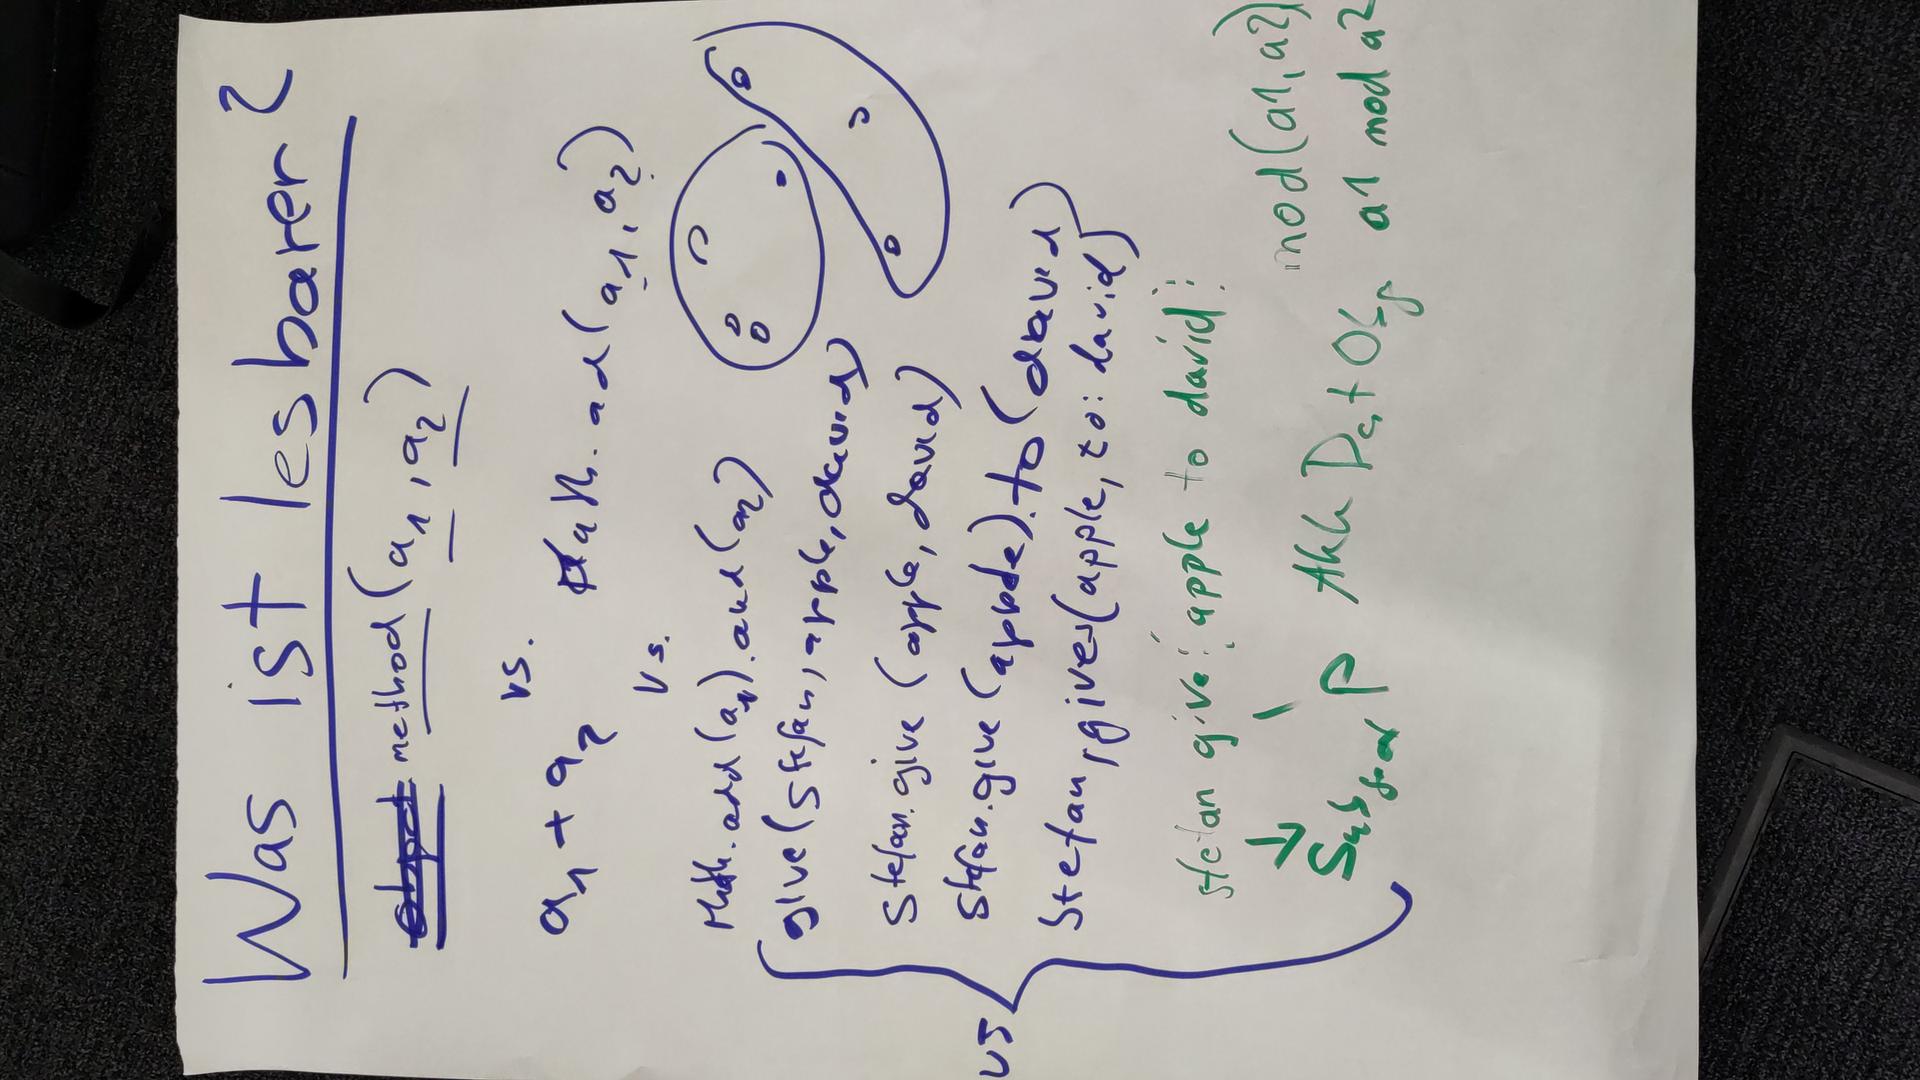 Was ist lesbarer?
method (a1, a2)
vs.
a1 + a2 Math.ad(a1, a2)
vs.
Math.add(a1).and(a2)
give(stefan, apple, david)
stefan.give (apple, david)
vs
stefan.give (apple).to (david)
Stefan, gives(apple, to: david)
stefan give apple to david
mod(a1, a2)
P Akk Dat Obj a1 mod a2